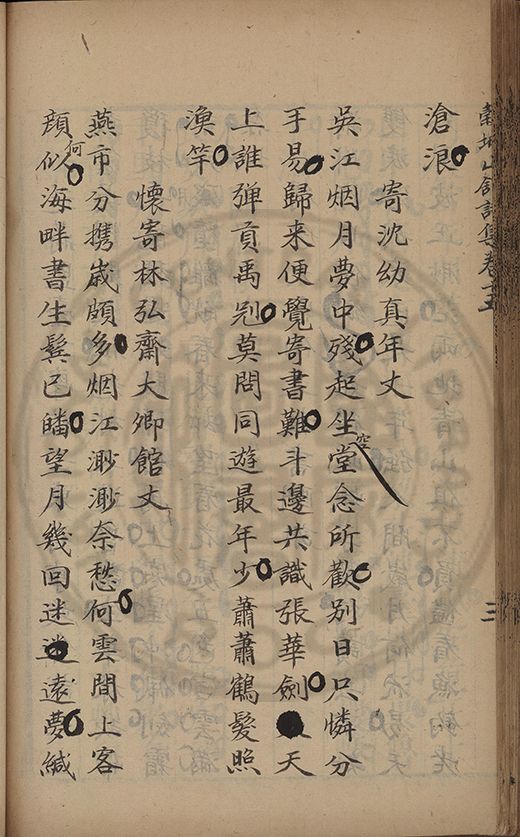 詩集卷十五
三
滄浪
寄沈幼真年丈
吳江烟月夢中殘起坐空堂念所歡別日只憐分
手易歸来便覺寄書難斗邊共識張華劍天
上誰弹貢禹冠莫問同遊最年少蕭蕭鶴髮照
漁竿
懷寄林弘齋大卿館丈
燕市分携歲頗多烟江渺渺奈愁何雲間上客
顔何似海畔書生鬓已皤望月幾回迷遠夢緘